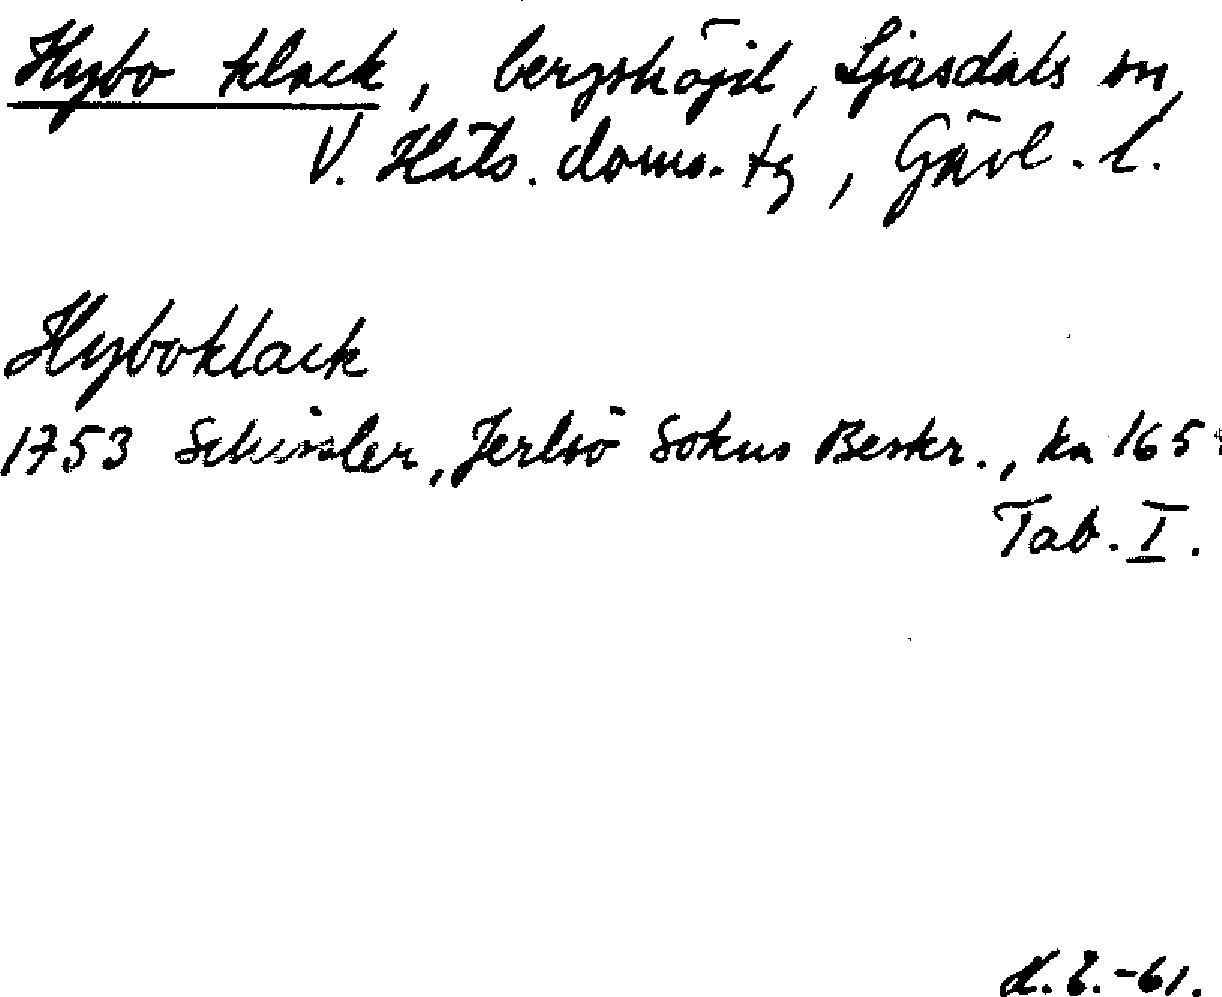 Hybo klack, bergshöjd, Ljusdals sn,
V. Häls. doms. tg, Gävl. l.
Hyboklack
1753 Schissler, Jerlsö Sokns Beskr., kn 165
Tab. I.
-61.